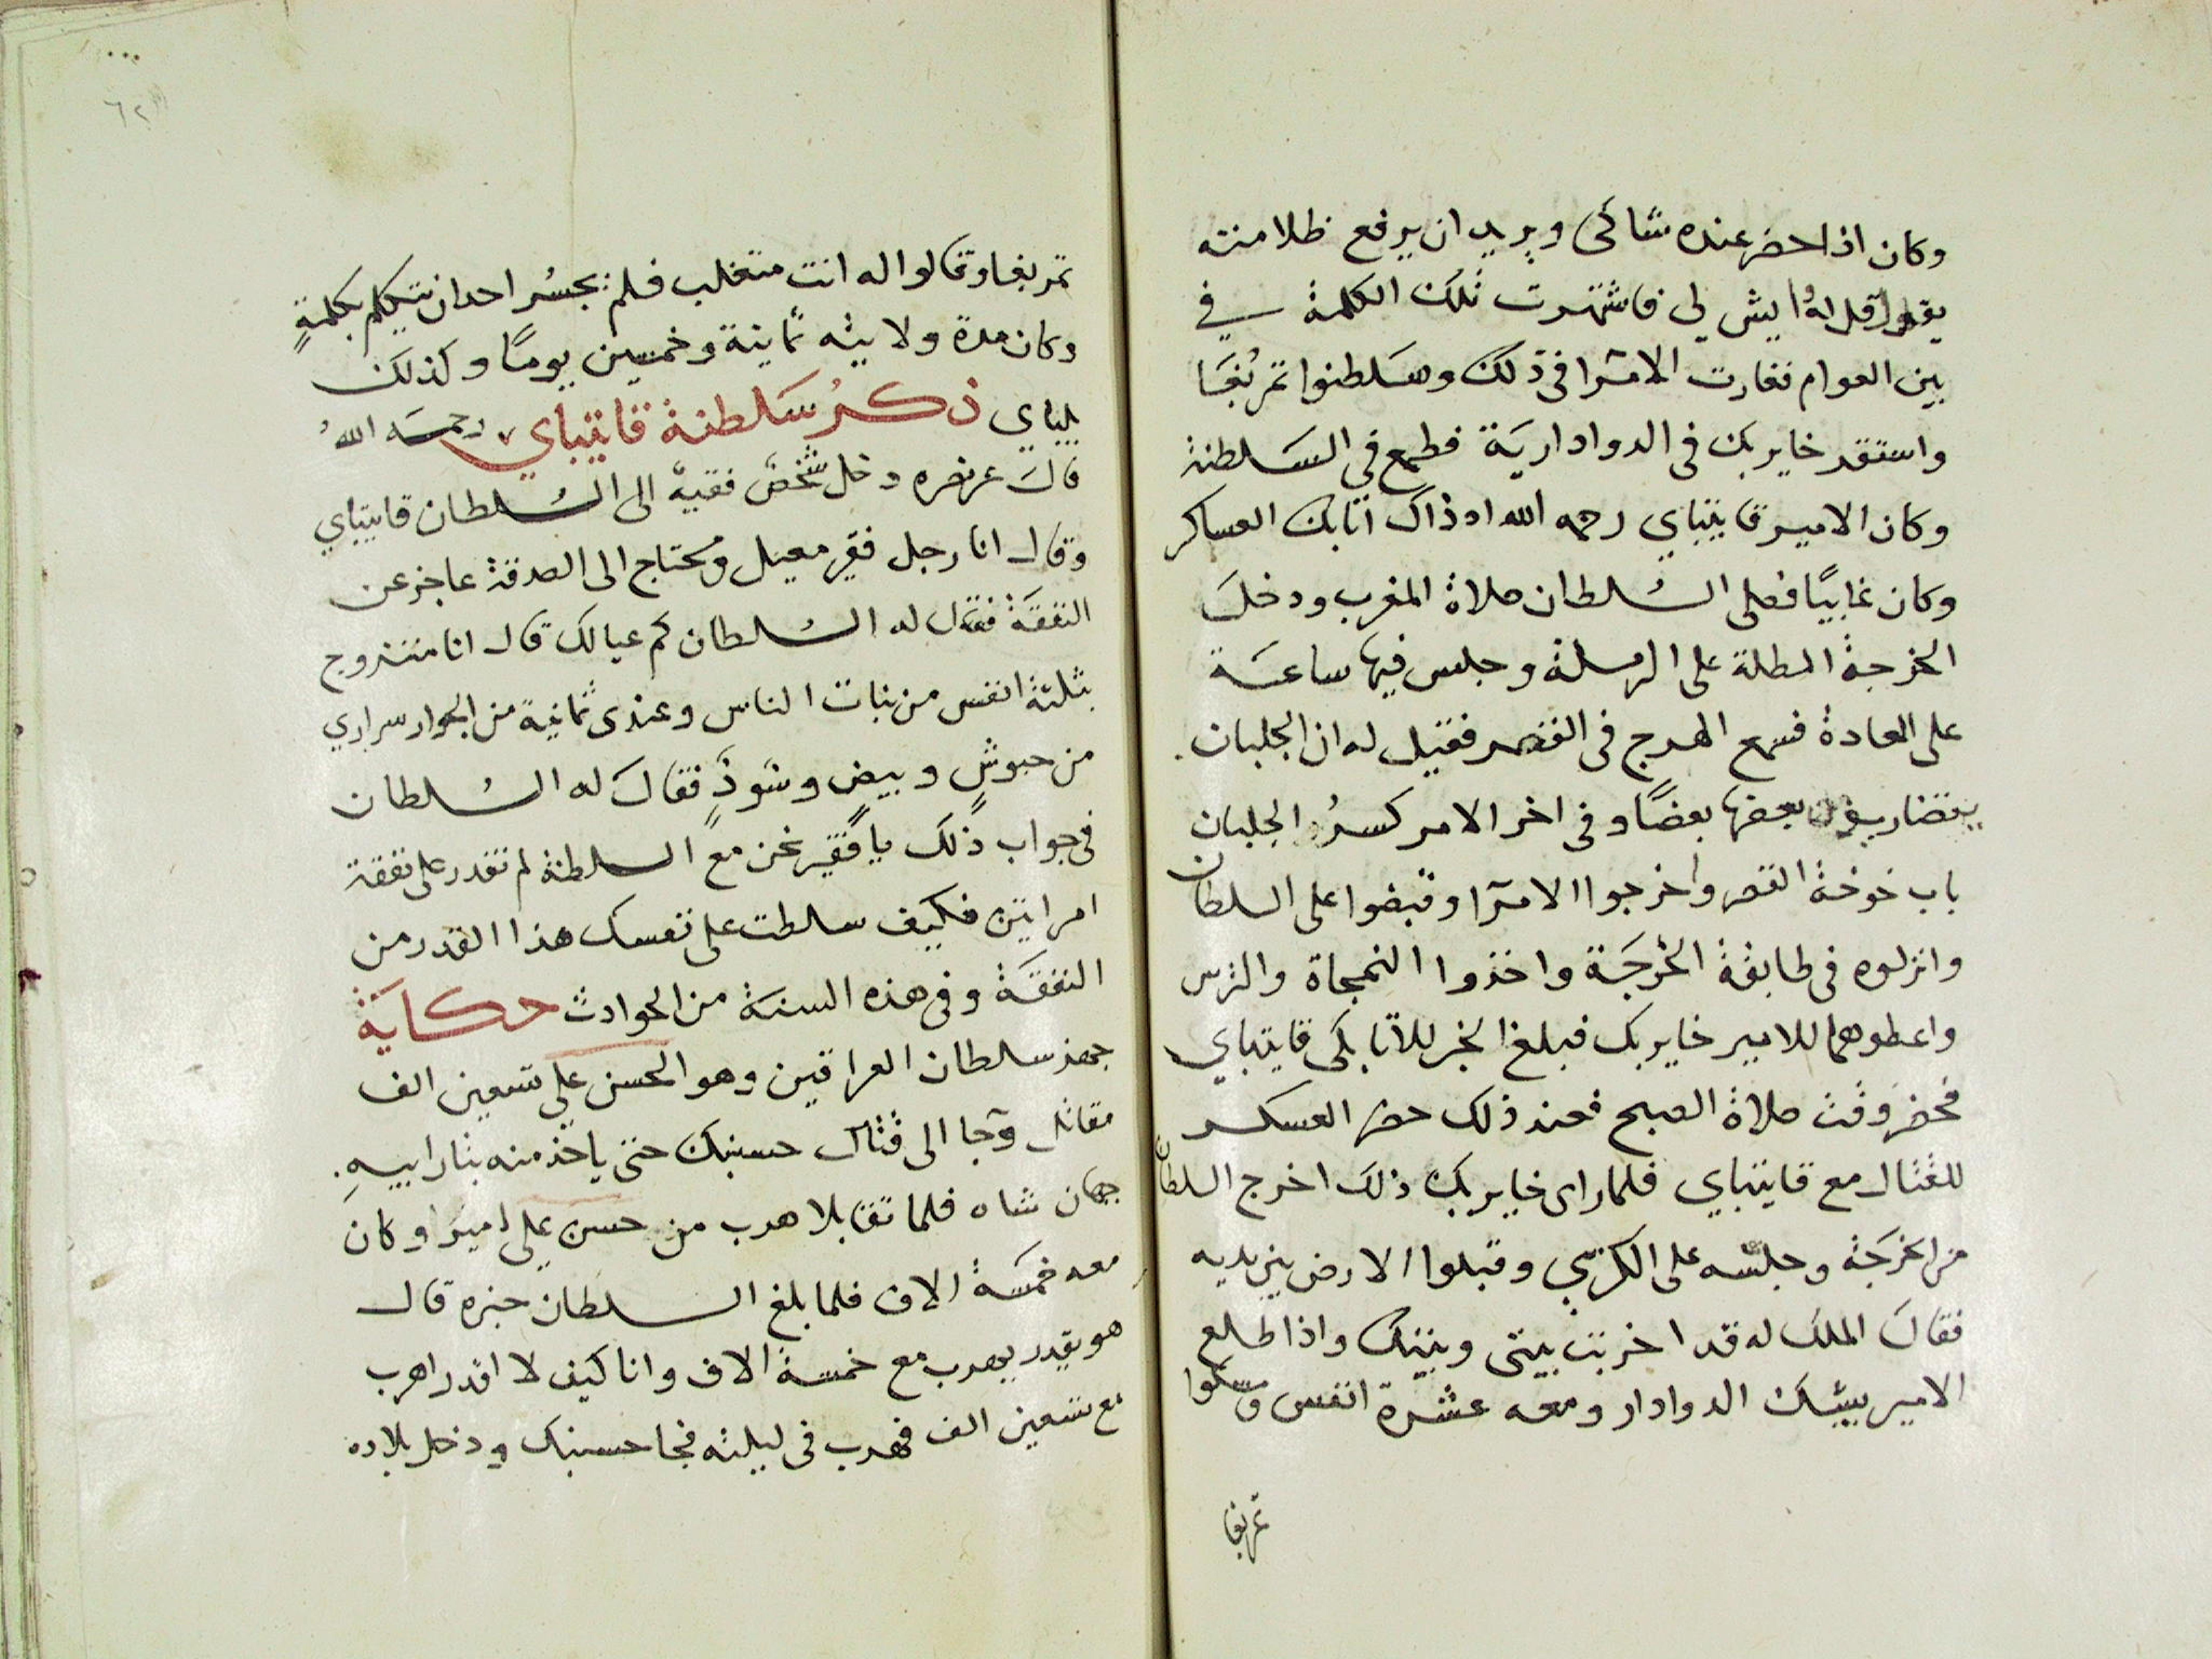 وكان اذا حضر عنده شاكى ويريد ان يرفع ظلامته
يقول قل له ايش لي فاشتهرت تلك الكلمة في
بين العوام فغارت الامرا فى ذلك وسلطنوا تمربغا
واستقر خاير بك فى الدوادارية فطمع فى السلطنة
وكان الامير قايتباي رحمه الله اذ ذاك اتابك العساكر
وكان غايبًا فصلى السلطان صلاة المغرب ودخل
الخرجة المطلة على الرملة وجلس فيها ساعة
على العادة فسمع الهرج فى القصر فقيل له ان الجلبان
يتضاربون بعضها بعضًا وفى اخر الامر كسر الجلبان
باب خوخة القصر واخرجوا الامرا وقبضوا على السلطان
وانزلوه فى طابقة الخرجة واخذوا النمجاة والترس
واعطوهما للامير خاير بك فبلغ الخبر للاتابكى قايتباي
فحضر وقت صلاة الصبح فعند ذلك حضر العسكر
للقتال مع قايتباي فلما راى خاير بك ذلك اخرج السلطان
من الخرجة وجلسه على الكرسي وقبلوا الارض بين يديه
فقال الملك له قد اخربت بيتى وبيتك واذا طلع
الامير يشبك الدوادار ومعه عشرة انفس ومسكوا
تمربغا
٦٢
تمربغا وقالوا له انت متغلب فلم يجسر احد ان يتكلم بكلمةٍ
وكان مدة ولايته ثمانية وخمسين يومًا وكذلك
يلباي ذكر سلطنة قايتباي رحمه الله
قال عز نصره دخل شخص فقيه الى السلطان قايتباي
وقال انا رجل فقير معيل ومحتاج الى الصدقة عاجز عن
النفقة فقال له السلطان كم عيالك قال انا متزوج
بثلثة انفس من بنات الناس وعندى ثمانية من الجوار سراري
من حبوشٍ وبيضٍ وسودٍ فقال له السلطان
فى جواب ذلك يا فقير نحن مع السلطنة لم نقدر على نفقة
امراتين فكيف سلطت على نفسك هذا القدر من
النفقة وفى هذه السنة من الحوادث حكاية
جهز سلطان العراقين وهو الحسن علي تسعين الف
مقاتل وجا الى قتال حسنبك حتى ياخذ منه بثار ابيه
جهان شاه فلما تقابلا هرب من حسن علي اميرا وكان
معه خمسة الاف فلما بلغ السلطان خبره قال
هو يقدر يهرب مع خمسة الاف وانا كيف لا اقدر اهرب
مع تسعين الف فهرب فى ليلته فجا حسنبك ودخل بلاده